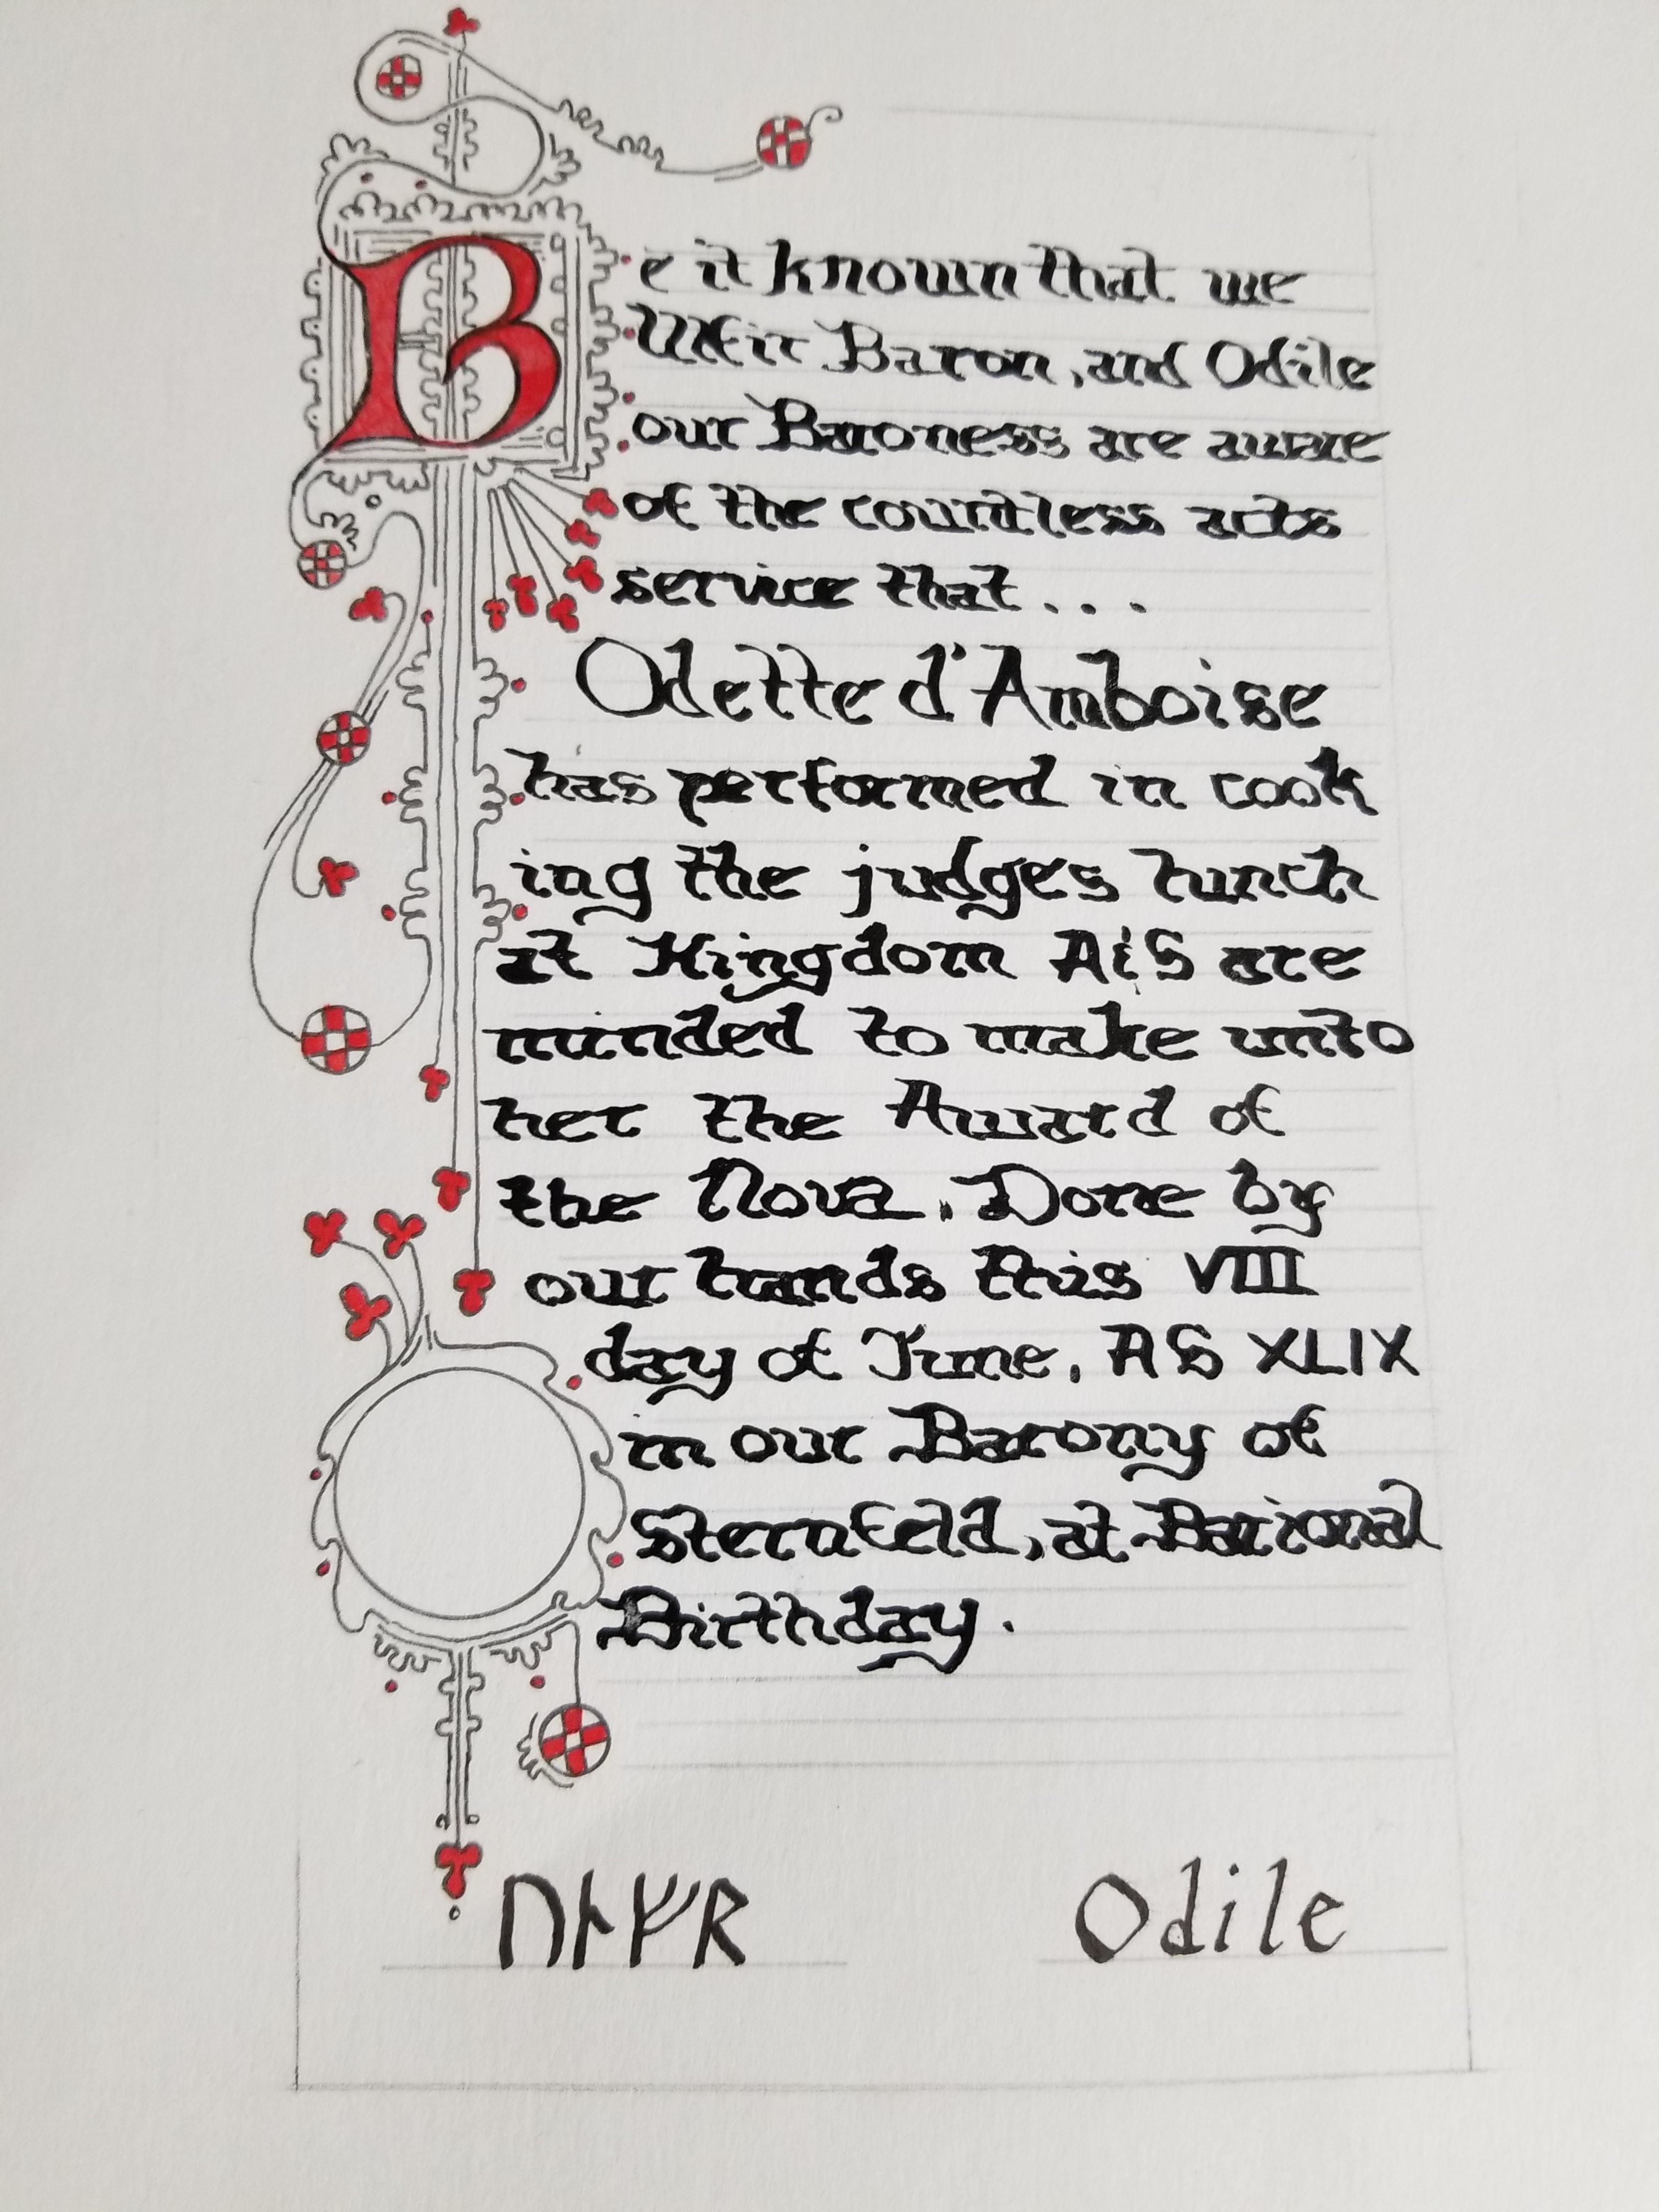 Be it known that we
Ulfir Baron, and Odile
our Baroness are aware
of the countless acts
service that...
Odette d'Amboise
has performed in cook
ing the judges lunch
at Kingdom A&S are
minded to make unto
her the Award of
the Nova. Done by
our hands this VIII
day of June, AS XLIX
in our Barony of
Sternfeld, at Baronial
Birthday.
ᚢᚾᚠᚱ Odile